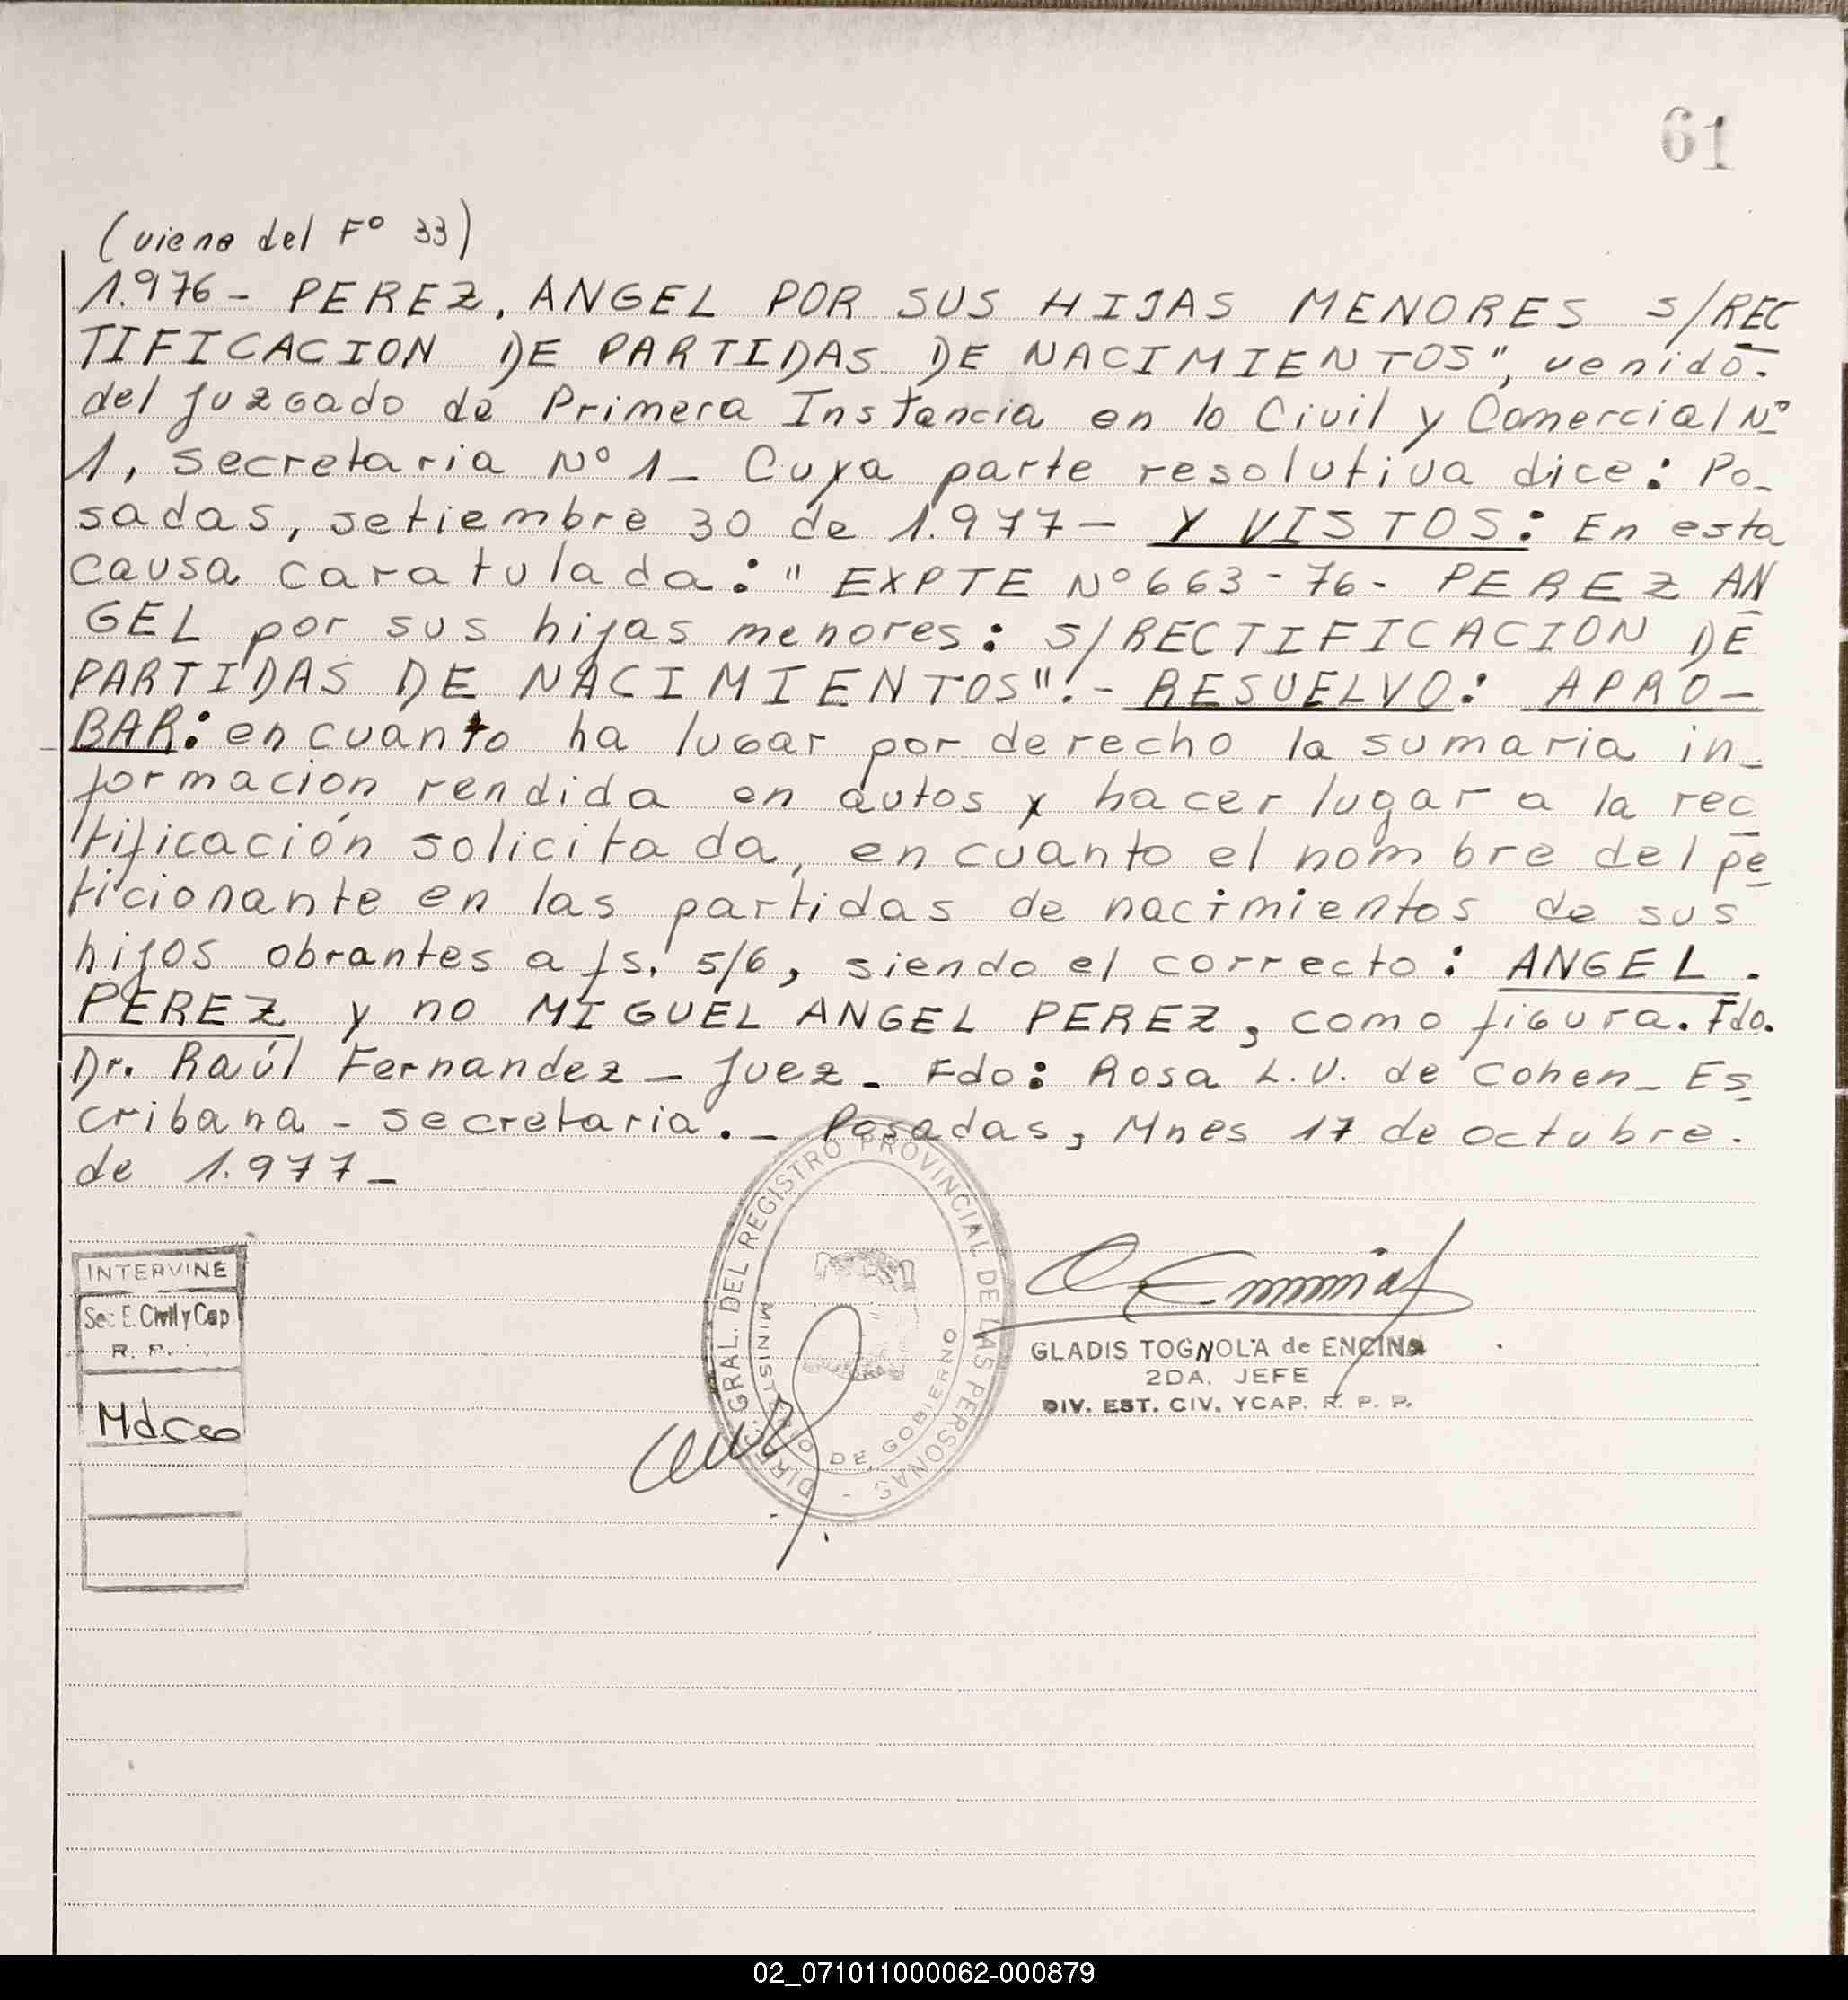 61
(viene del Fº 33)
1.976- PEREZ, ANGEL POR SUS HIJAS MENORES S/REC
TIFICACION DE PARTIDAS DE NACIMIENTOS", venido.
del juzgado de Primera Instancia en lo Civil y Comercial Nº
1, secretaria Nº 1_ Cuya parte resolutiva dice: Po_
sadas, setiembre 30 de 1.977- Y VISTOS: En esta
causa caratulada: "EXPTE Nº 663-76- PEREZ AN
GEL por sus hijas menores: S/RECTIFICACION DE
PARTIDAS DE NACIMIENTOS".- RESUELVO: APRO-
BAR: en cuanto ha lugar por derecho la sumaria in_
formación rendida en autos y hacer lugar a la rec
tificación solicitada, en cuanto el nombre del pe
ticionante en las partidas de nacimientos de sus
hijos obrantes a fs. 5/6, siendo el correcto: ANGEL.
PEREZ y no MIGUEL ANGEL PEREZ, como figura. Fdo.
Dr. Raúl Fernandez - Juez_ Fdo: Rosa L.V. de Cohen_ Es
cribana - secretaria._ Posadas, Mnes 17 de octubre.
de 1.977_
DIREC. GRAL. DEL REGISTRO PROVINCIAL DE LAS PERSONAS -
MINISTERIO DE GOBIERNO
INTERVINE
Sec E. Civil y Cap
R. P.
GLADIS TOGNOLA de ENCINA
2DA. JEFE
DIV. EST. CIV. YCAP. R. P. P.
02_071011000062-000879